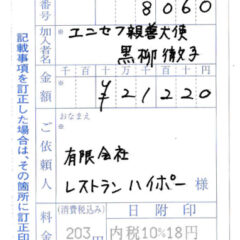 番号
8060
加入者名
※
エニセフ親善大使
黒柳徹子
金額
千百十万千百十円
※
¥21220
ご依頼人
※
おなまえ
有限会社
レストランハイポー様
料金
(消費税込み)
203円
日附印
内税10%18円
記載事項を訂正した場合は、その箇所に訂正印